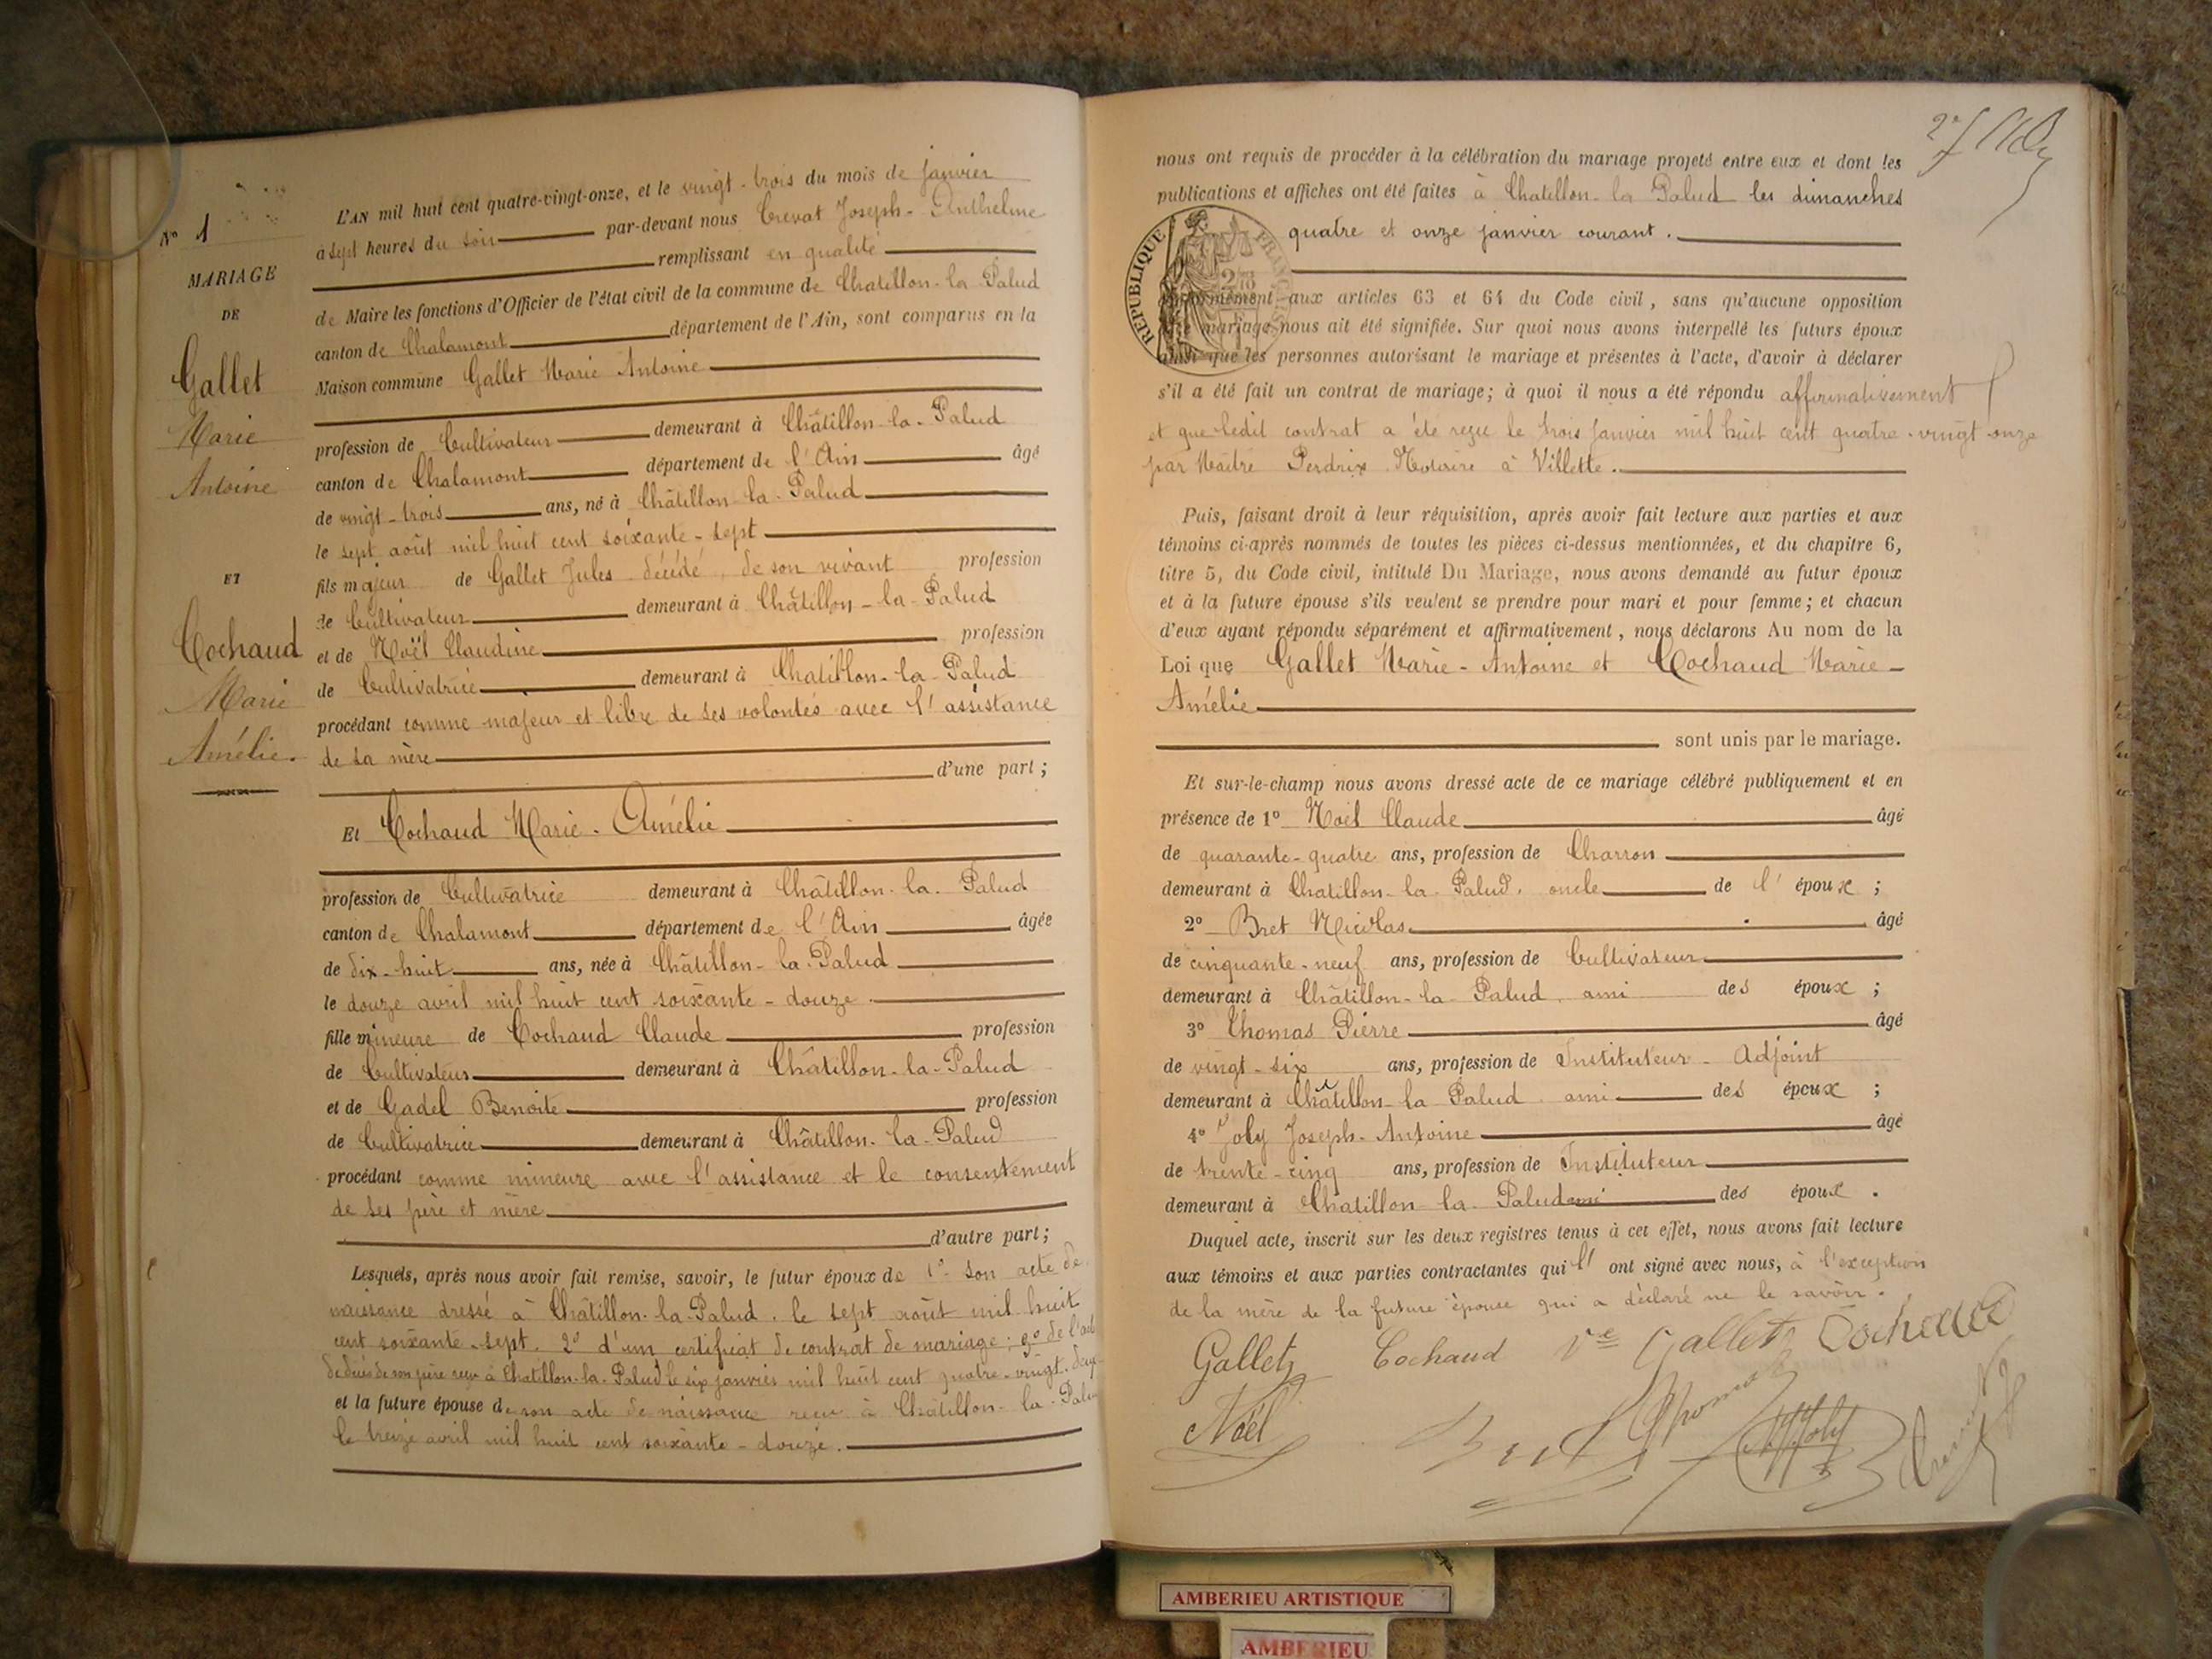 N° 1
MARIAGE
DE
Gallet
Marie
Antoine
ET
Cochaud
Marie
Amélie.
L'AN mil huit cent quatre-vingt-onze, et le vingt-trois du mois de janvier
à sept heures du soir par-devant nous Crevat Joseph-Anthelme
remplissant en qualité
de Maire les fonctions d'Officier de l'état civil de la commune de Chatillon-la-Palud
canton de Chalamont département de l'Ain, sont comparus en la
Maison commune Gallet Marie Antoine
profession de Cultivateur demeurant à Châtillon-la-Palud
canton de Chalamont département de l'Ain âgé
de vingt-trois ans, né à Châtillon-la-Palud
le sept août mil huit cent soixante-sept
fils majeur de Gallet Jules décédé, de son vivant profession
de Cultivateur demeurant à Châtillon-la-Palud
et de Noël Claudine profession
de Cultivatrice demeurant à Chatillon-la-Palud
procédant comme majeur et libre de ses volontés avec l'assistance
de sa mère
d'une part;
Et Cochaud Marie-Amélie
profession de Cultivatrice demeurant à Châtillon-la-Palud
canton de Chalamont département de l'Ain âgée
de dix-huit ans, née à Châtillon-la-Palud
le douze avril mil huit cent soixante-douze.
fille mineure de Cochaud Claude profession
de Cultivateur demeurant à Châtillon-la-Palud
et de Gadel Benoite profession
de Cultivatrice demeurant à Châtillon-la-Palud
procédant comme mineure avec l'assistance et le consentement
de ses père et mère
d'autre part;
Lesquels, après nous avoir fait remise, savoir, le futur époux de 1° son acte de
naissance dressé à Châtillon-la-Palud, le sept août mil huit
cent soixante-sept. 2° d'un certificat de contrat de mariage; 3° de l'acte
de décès de son père reçu à Chatillon-la-Palud le six janvier mil huit cent quatre-vingt-deux
et la future épouse de son acte de naissance reçu à Châtillon-la-Palud
le treize avril mil huit cent soixante-douze.
nous ont requis de procéder à la célébration du mariage projeté entre eux et dont les
publications et affiches ont été faites à Chatillon-la-Palud les dimanches
quatre et onze janvier courant.
RÉPUBLIQUE FRANÇAISE
conformément aux articles 63 et 64 du Code civil, sans qu'aucune opposition
mariage nous ait été signifiée. Sur quoi nous avons interpellé les futurs époux
ainsi que les personnes autorisant le mariage et présentes à l'acte, d'avoir à déclarer
s'il a été fait un contrat de mariage; à quoi il nous a été répondu affirmativement
et que ledit contrat a été reçu le trois janvier mil huit cent quatre-vingt-onze
par Maître Perdrix Notaire à Villette.
Puis, faisant droit à leur réquisition, après avoir fait lecture aux parties et aux
témoins ci-après nommés de toutes les pièces ci-dessus mentionnées, et du chapitre 6,
titre 5, du Code civil, intitulé Du Mariage, nous avons demandé au futur époux
et à la future épouse s'ils veulent se prendre pour mari et pour femme; et chacun
d'eux ayant répondu séparément et affirmativement, nous déclarons Au nom de la
Loi que Gallet Marie-Antoine et Cochaud Marie-
Amélie
sont unis par le mariage.
Et sur-le-champ nous avons dressé acte de ce mariage célébré publiquement et en
présence de 1° Noël Claude âgé
de quarante-quatre ans, profession de Charron
demeurant à Chatillon-la-Palud, oncle de l'époux;
2° Bret Nicolas âgé
de cinquante-neuf ans, profession de Cultivateur
demeurant à Châtillon-la-Palud, ami des époux;
3° Thomas Pierre âgé
de vingt-six ans, profession de Instituteur-Adjoint
demeurant à Châtillon-la-Palud ami des époux;
4° Joly Joseph-Antoine âgé
de trente-cinq ans, profession de Instituteur
demeurant à Chatillon-la-Palud ami des époux.
Duquel acte, inscrit sur les deux registres tenus à cet effet, nous avons fait lecture
aux témoins et aux parties contractantes qui l'ont signé avec nous, à l'exception
de la mère de la future épouse qui a déclaré ne le savoir.
Gallet Cochaud Ve Gallet Cochaud
Noël Bret Thomas Joly Crevat
AMBERIEU ARTISTIQUE
AMBERIEU